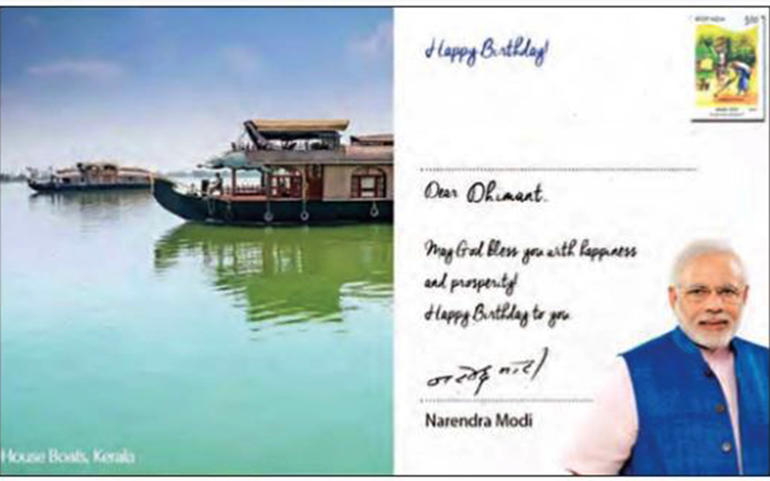 Happy Birthday!
Dear Dhimant.
May God bless you with happiness
and prosperity!
Happy Birthday to you
नरेन्द्र मोदी
Narendra Modi
House Boats, Kerala